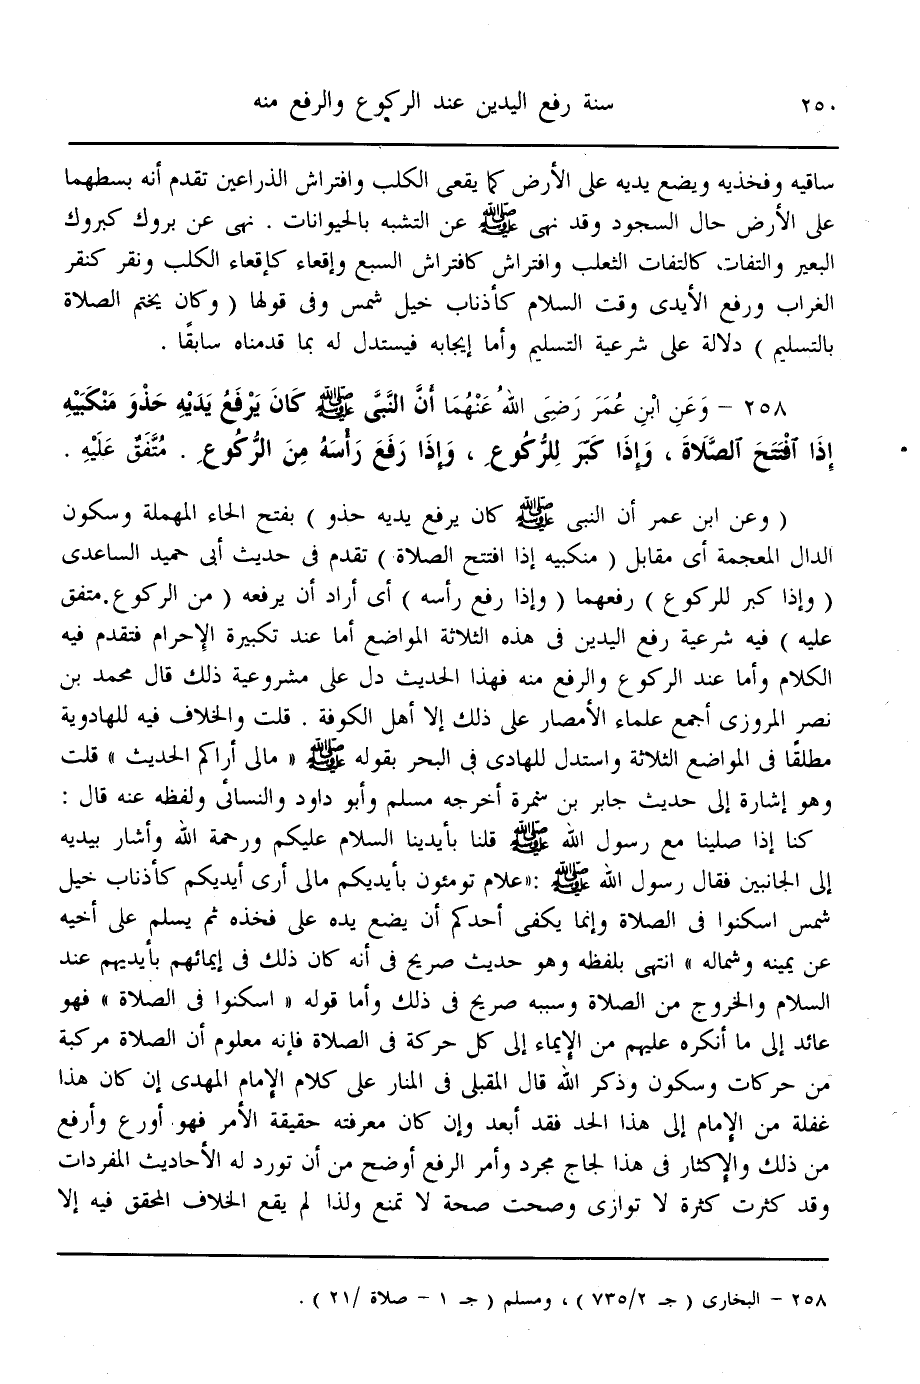 ٢٥٠ سنة رفع اليدين عند الركوع والرفع منه
ساقيه وفخذيه ويضع يديه على الأرض كما يقعى الكلب وافتراش الذراعين تقدم أنه بسطهما
على الأرض حال السجود وقد نهى ﷺ عن التشبه بالحيوانات . نهى عن بروك كبروك
البعير والتفات كالتفات الثعلب وافتراش كافتراش السبع وإقعاء كإقعاء الكلب ونقر كنقر
الغراب ورفع الأيدى وقت السلام كأذناب خيل شمس وفى قولها ( وكان يختم الصلاة
بالتسليم ) دلالة على شرعية التسليم وأما إيجابه فيستدل له بما قدمناه سابقًا .
٢٥٨ – وَعَنِ ابْنِ عُمَرَ رَضِىَ اللهُ عَنْهُمَا أَنَّ النَّبِىَّ ﷺ كَانَ يَرْفَعُ يَدَيْهِ حَذْوَ مَنْكَبَيْهِ
إِذَا ٱفْتَتَحَ ٱلصَّلَاةَ ، وَإِذَا كَبَّرَ لِلرُّكُوعِ ، وَإِذَا رَفَعَ رَأْسَهُ مِنَ الرُّكُوعِ . مُتَّفَقٌ عَلَيْهِ .
( وعن ابن عمر أن النبى ﷺ كان يرفع يديه حذو ) بفتح الحاء المهملة وسكون
الدال المعجمة أى مقابل ( منكبيه إذا افتتح الصلاة ) تقدم فى حديث أبى حميد الساعدى
( وإذا كبر للركوع ) رفعهما ( وإذا رفع رأسه ) أى أراد أن يرفعه ( من الركوع . متفق
عليه ) فيه شرعية رفع اليدين فى هذه الثلاثة المواضع أما عند تكبيرة الإحرام فتقدم فيه
الكلام وأما عند الركوع والرفع منه فهذا الحديث دل على مشروعية ذلك قال محمد بن
نصر المروزى أجمع علماء الأمصار على ذلك إلا أهل الكوفة . قلت والخلاف فيه للهادوية
مطلقًا فى المواضع الثلاثة واستدل للهادى فى البحر بقوله ﷺ « مالى أراكم الحديث » قلت
وهو إشارة إلى حديث جابر بن سمرة أخرجه مسلم وأبو داود والنسائى ولفظه عنه قال :
كنا إذا صلينا مع رسول الله ﷺ قلنا بأيدينا السلام عليكم ورحمة الله وأشار بيديه
إلى الجانبين فقال رسول الله ﷺ :«علام تومئون بأيديكم مالى أرى أيديكم كأذناب خيل
شمس اسكنوا فى الصلاة وإنما يكفى أحدكم أن يضع يده على فخذه ثم يسلم على أخيه
عن يمينه وشماله » انتهى بلفظه وهو حديث صريح فى أنه كان ذلك فى إيمائهم بأيديهم عند
السلام والخروج من الصلاة وسببه صريح فى ذلك وأما قوله « اسكنوا فى الصلاة » فهو
عائد إلى ما أنكره عليهم من الإيماء إلى كل حركة فى الصلاة فإنه معلوم أن الصلاة مركبة
من حركات وسكون وذكر الله قال المقبلى فى المنار على كلام الإمام المهدى إن كان هذا
غفلة من الإمام إلى هذا الحد فقد أبعد وإن كان معرفته حقيقة الأمر فهو أورع وأرفع
من ذلك والإكثار فى هذا لجاج مجرد وأمر الرفع أوضح من أن تورد له الأحاديث المفردات
وقد كثرت كثرة لا توازى وصحت صحة لا تمنع ولذا لم يقع الخلاف المحقق فيه إلا
٢٥٨ – البخارى ( جـ ٧٣٥/٢ ) ، ومسلم ( جـ ١ – صلاة /٢١ ) .